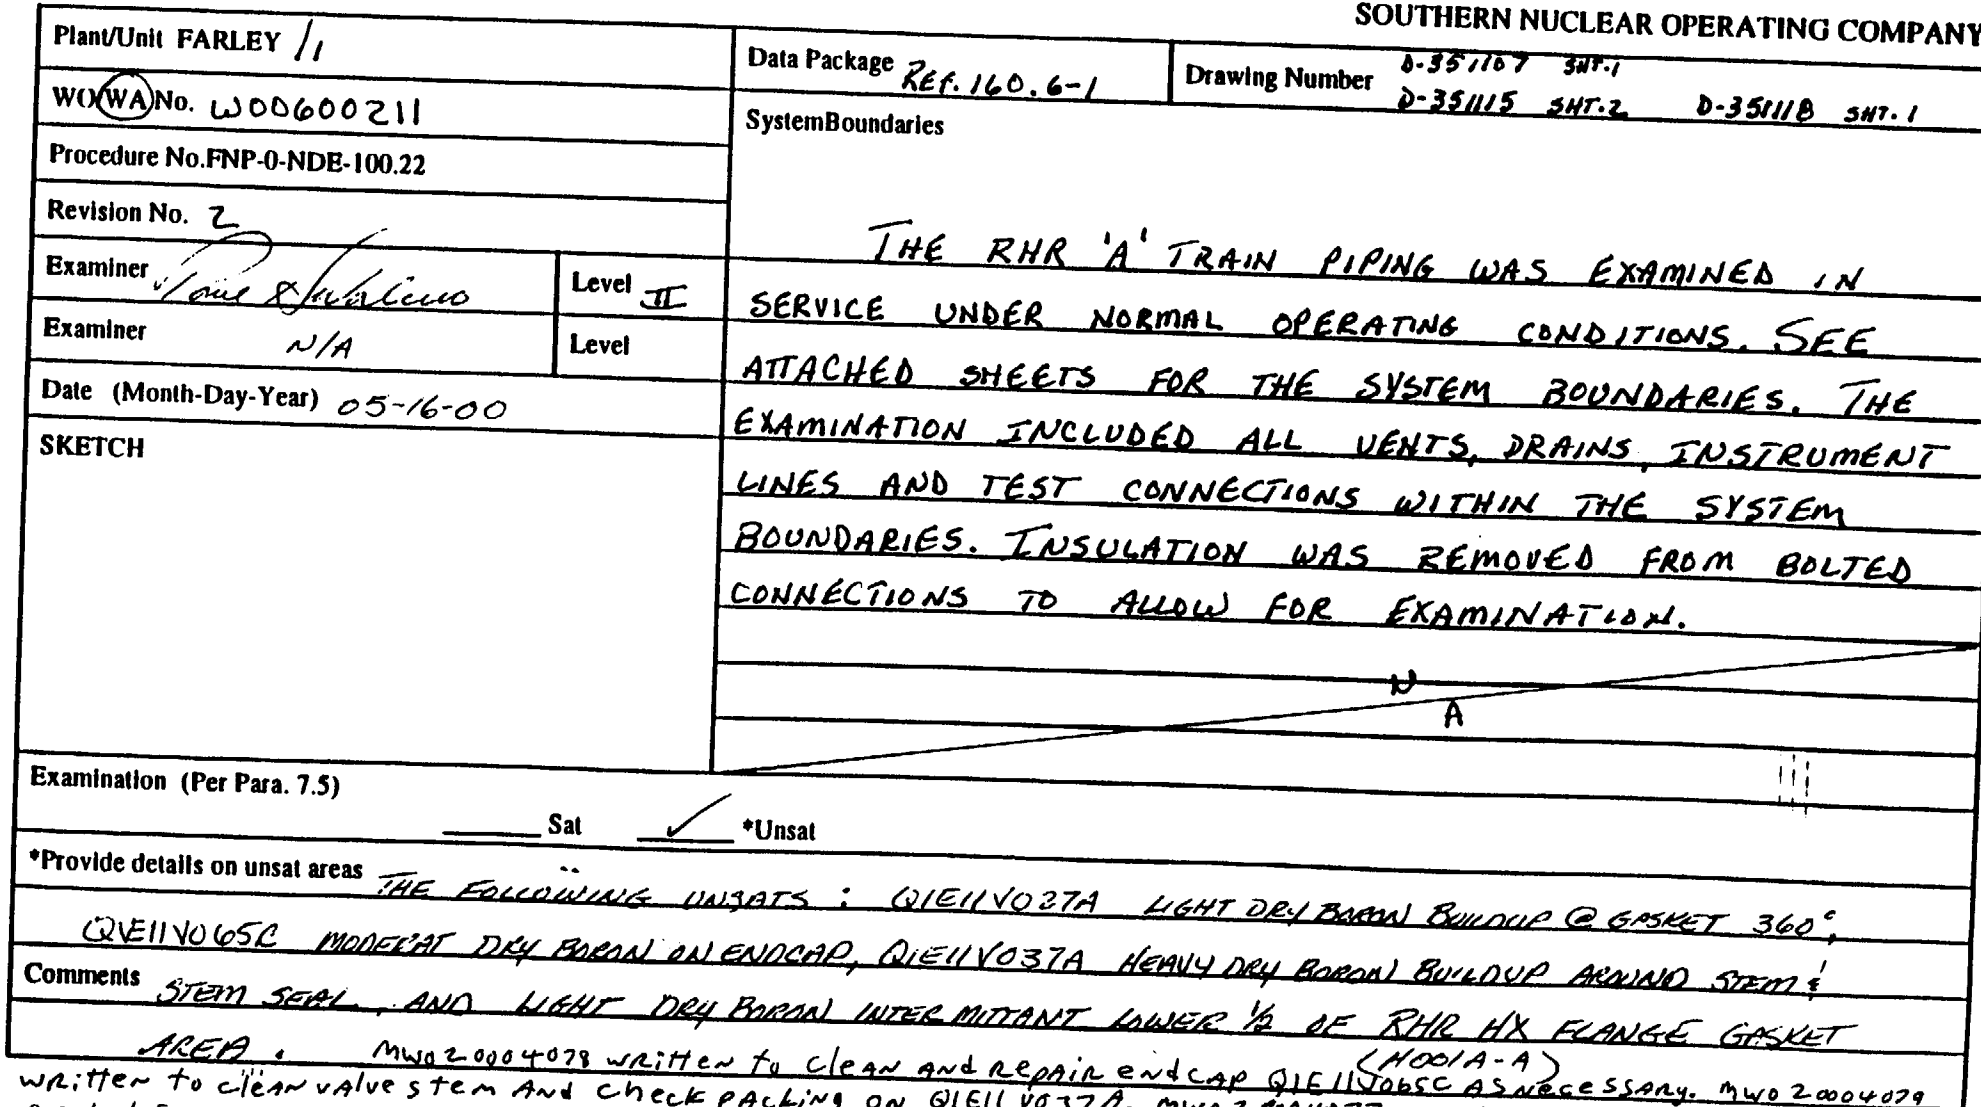 SOUTHERN NUCLEAR OPERATING COMPANY
Plant/Unit FARLEY /1
Data Package REF. 160.6-1
Drawing Number D-351107 SHT.1
D-351115 SHT.2 D-351118 SHT.1
WO/WA No. W00600211
SystemBoundaries
Procedure No.FNP-0-NDE-100.22
Revision No. 2
Examiner
Level II
Examiner N/A
Level
Date (Month-Day-Year) 05-16-00
SKETCH
THE RHR 'A' TRAIN PIPING WAS EXAMINED IN
SERVICE UNDER NORMAL OPERATING CONDITIONS. SEE
ATTACHED SHEETS FOR THE SYSTEM BOUNDARIES. THE
EXAMINATION INCLUDED ALL VENTS, DRAINS, INSTRUMENT
LINES AND TEST CONNECTIONS WITHIN THE SYSTEM
BOUNDARIES. INSULATION WAS REMOVED FROM BOLTED
CONNECTIONS TO ALLOW FOR EXAMINATION.
N
A
Examination (Per Para. 7.5)
Sat ✓ *Unsat
*Provide details on unsat areas THE FOLLOWING UNSATS : Q1E11V027A LIGHT DRY BORON BUILDUP @ GASKET 360°,
Q1E11V065C MODERAT DRY BORON ON ENDCAP, Q1E11V037A HEAVY DRY BORON BUILDUP AROUND STEM &
Comments STEM SEAL, AND LIGHT DRY BORON INTERMITTANT LOWER 1/2 OF RHR HX FLANGE GASKET
AREA. (H001A-A)
MWO 20004078 written to clean and repair endcap Q1E11V065C as necessary. MWO 20004079
written to clean valve stem and check packing on Q1E11V037A.